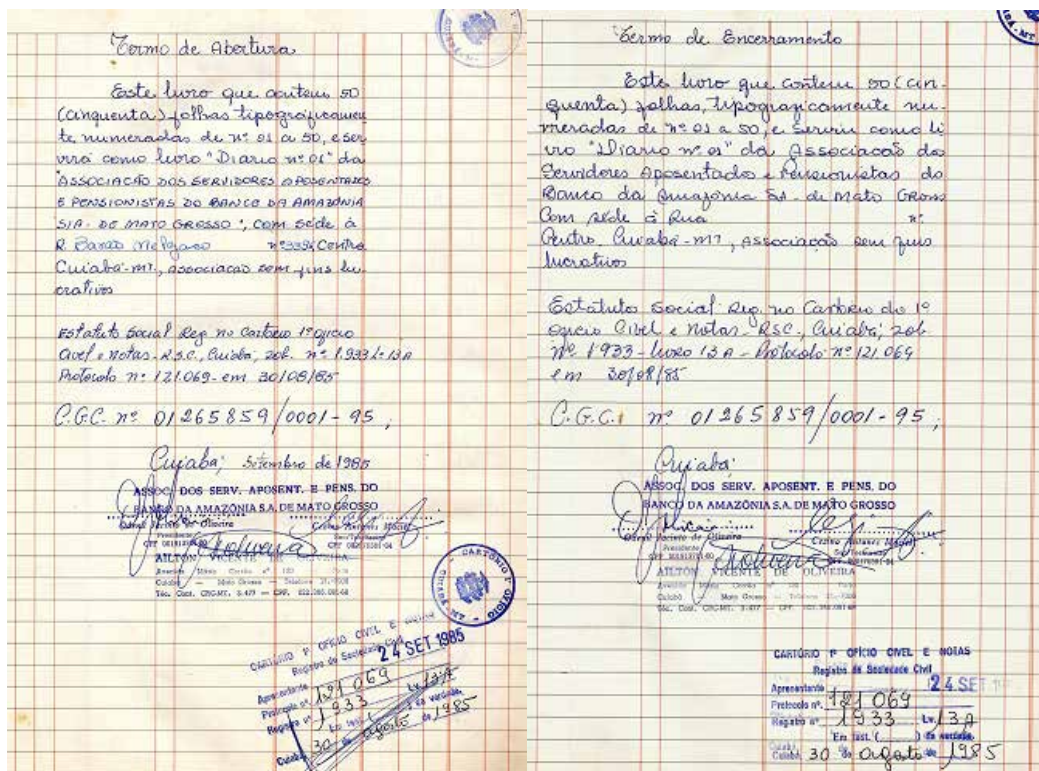 Termo de Abertura
Este livro que contem 50
(cinquenta) folhas tipograficamen
te numeradas de nº 01 a 50, e ser
virá como livro "Diario nº 01" da
"ASSOCIACÃO DOS SERVIDORES APOSENTADOS
E PENSIONISTAS DO BANCO DA AMAZÔNIA
S/A. DE MATO GROSSO", COM SÉDE à
R. Barão Melgaço nº 3394 Centro
Cuiabá-MT, associacão sem fins lu
crativos
Estatuto Social Reg no Cartório 1º oficio
Civel e notas - R.S.C., Cuiabá, sob. nº 1.933 L-13A
Protocolo nº 121.069 - em 30/08/85
C.G.C. nº 01265859/0001-95,
Cuiabá, Setembro de 1985
ASSOC. DOS SERV. APOSENT. E PENS. DO
BANCO DA AMAZÔNIA S.A. DE MATO GROSSO
Jacinto de Oliveira
Presidente
AILTON VICENTE DE OLIVEIRA
Cuiabá — Mato Grosso — Telefone
Téc. Cont. CRC-MT. 3.477 — CPF.
CARTÓRIO 1º OFÍCIO
CARTÓRIO 1º OFÍCIO CIVEL E NOTAS
Registro de Sociedade Civil
24 SET 1985
Apresentante
Protocolo nº. 121 069
Registro nº 1933 Lv. 13A
Em test. ( ) da verdade.
Cuiabá, 30 de agosto de 1985
Termo de Encerramento
Este livro que contem 50 (cin-
quenta) folhas, tipograficamente nu-
meradas de nº 01 a 50, e serviu como li
vro "Diario nº 01" da Associacão dos
Servidores Aposentados e Pensionistas do
Banco da Amazônia SA - de Mato Grosso
Com sede à Rua nº
Centro Cuiabá-MT, associacão sem fins
lucrativos
Estatuto Social Reg. no Cartório do 1º
oficio Civel e Notas - RSC., Cuiabá, sob
nº 1933 - livro 13A - Protocolo nº 121.069
em 30/08/85
C.G.C. nº 01265859/0001-95,
Cuiabá,
ASSOC. DOS SERV. APOSENT. E PENS. DO
BANCO DA AMAZÔNIA S.A. DE MATO GROSSO
Jacinto de Oliveira
Presidente
AILTON VICENTE DE OLIVEIRA
Cuiabá — Mato Grosso — Telefone
Téc. Cont. CRC-MT. 3.477 — CPF.
CARTÓRIO 1º OFÍCIO CIVEL E NOTAS
Registro de Sociedade Civil
24 SET
Apresentante
Protocolo nº. 121 069
Registro nº 1933 Lv. 13A
Em test. ( ) da verdade.
Cuiabá, 30 de agosto de 1985